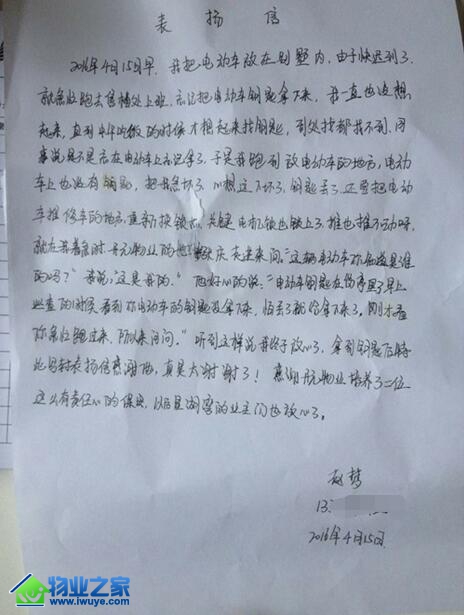 表扬信
2016年4月15日早，我把电动车放在别墅内，由于快迟到了，
就急忙跑去售楼处上班，忘记把电动车钥匙拿下来，我一直也没想
起来，直到中午吃饭的时候才想起来找钥匙，到处找都找不到，同
事说是不是忘在电动车上忘记拿了，于是我跑到放电动车的地方，电动
车上也没有钥匙，把我急坏了，心想这下坏了，钥匙丢了，还要把电动
车推修车的地方，重新换锁，关键电机锁也锁上了，推也推不动呀，
就在我着急时
物业的
庆
走过来问，“这辆电动车你知道是谁
的吗？”我说，“这是我的。”他好心的说：“电动车钥匙在
早上
巡查的时候看到你电动车的钥匙没拿下来，怕丢了就给拿下来了。刚才看
你急忙跑过来，所以来问问。”听到这样说我终于放心了，拿到钥匙后特
此写封表扬信感谢他，真是太谢谢了！
物业培养了一位
这么有责任心的保安，
湖湾的业主们也放心了。
赵梦
13
2016年4月15日
物业之家
www.iwuye.com